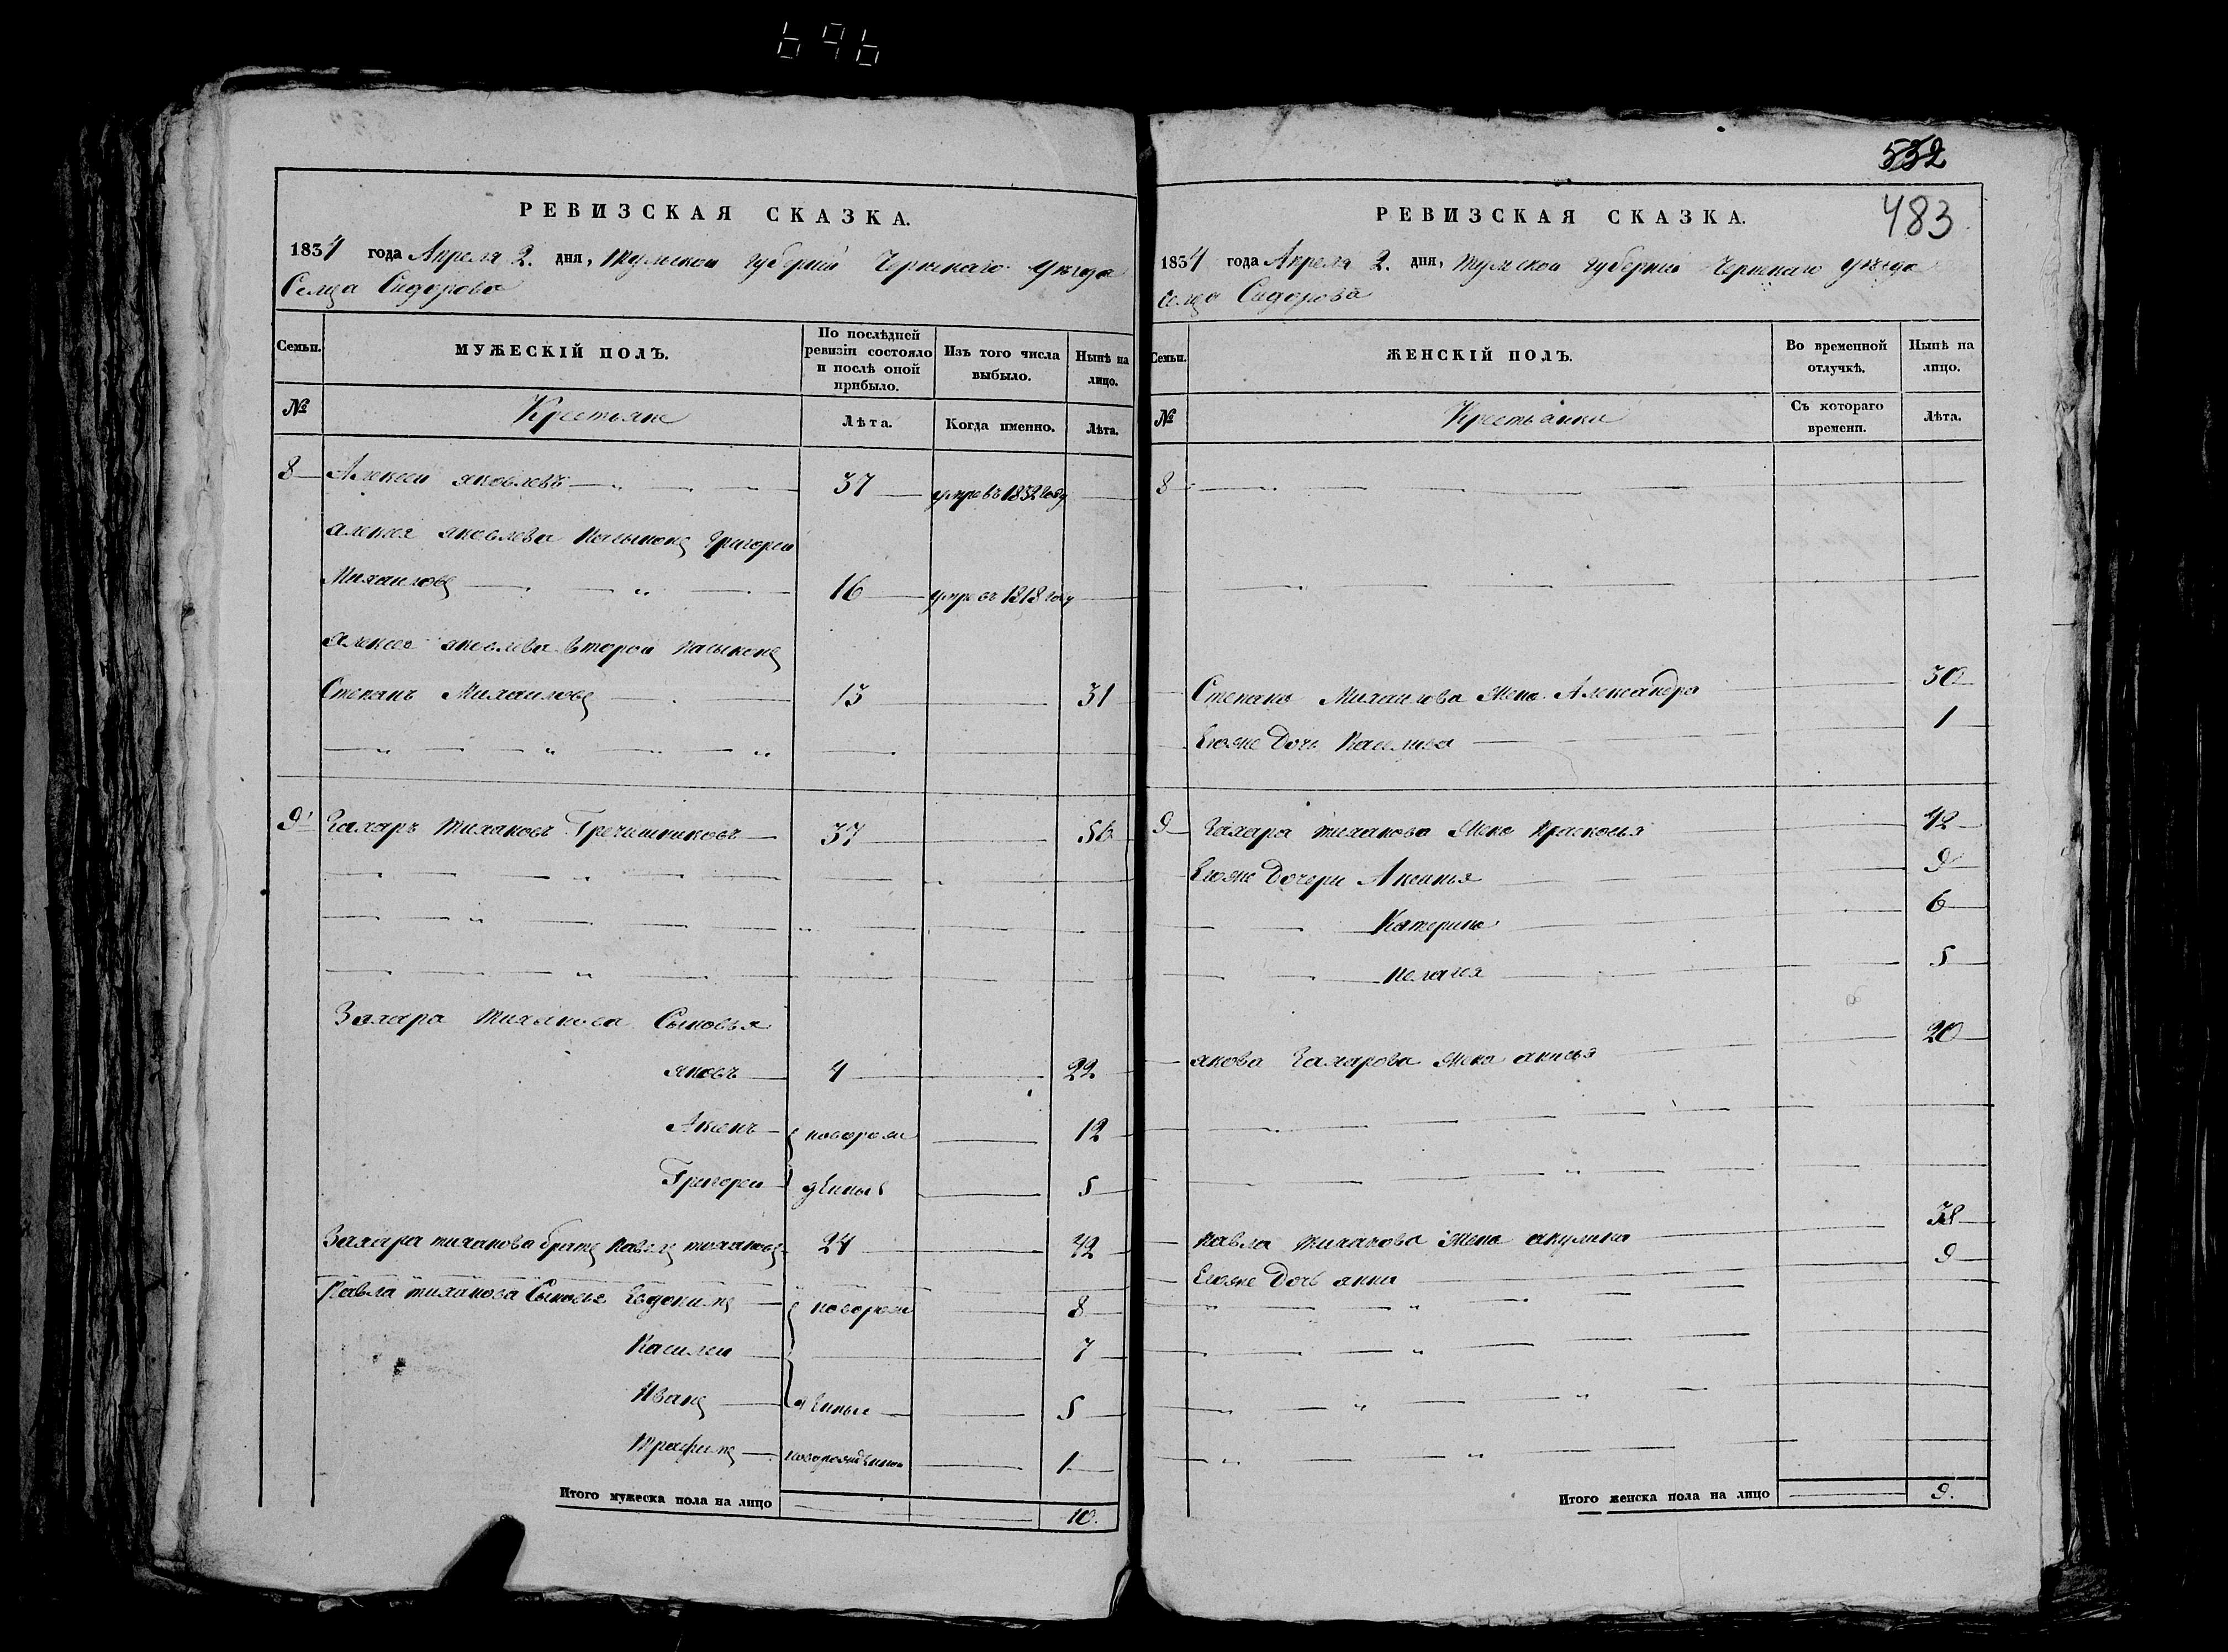 696
РЕВИЗСКАЯ СКАЗКА.
1834 года Апреля 2. дня, Тулской Губернии Чернскаго уезда
Селца Сидорова
Семьи.
МУЖЕСКІЙ ПОЛЪ.
По послѣдней ревизіи состояло и послѣ оной прибыло.
Изъ того числа выбыло.
Нынѣ на лицо.
№
Крестьяне
Лѣта.
Когда именно.
Лѣта.
8 Алексей яковлевъ 37 умре въ 1832 году
алексея яковлева Григореи
Михаилов 16 умре въ 1818 году
Алексея яковлева второй
Степанъ Михаилов 13 31
9 Захаръ Тихановъ Гречишниковъ 37 56
Захара Тиханова Сыновья
яковъ 4 22
Аксенъ новорож 12
Григореи денные 5
Захара тиханова братъ Павелъ тихановъ 24 42
Павла тиханова Сыновья Евдокимъ новорож 8
Василеи 7
Иванъ денные 5
Трафимъ новорожденной 1
Итого мужеска пола на лицо 10.
532
483
РЕВИЗСКАЯ СКАЗКА.
1834 года Апреля 2. дня, Тулской Губернии Чернскаго уезда
Селца Сидорова
Семьи.
ЖЕНСКІЙ ПОЛЪ.
Во временной отлучкѣ.
Нынѣ на лицо.
№
Крестьянки
Съ котораго времени.
Лѣта.
8
Степана Михаилова жена Александра 30
Евоже Дочь 1
9 Захара тиханова жена Прасковья 42
Евоже Дочери Аксинья 9
Катерина 6
Пелагея 5
якова Захарова жена анисья 20
Павла тиханова жена акулина 38
Евоже Дочь анна 9
Итого женска пола на лицо 9.